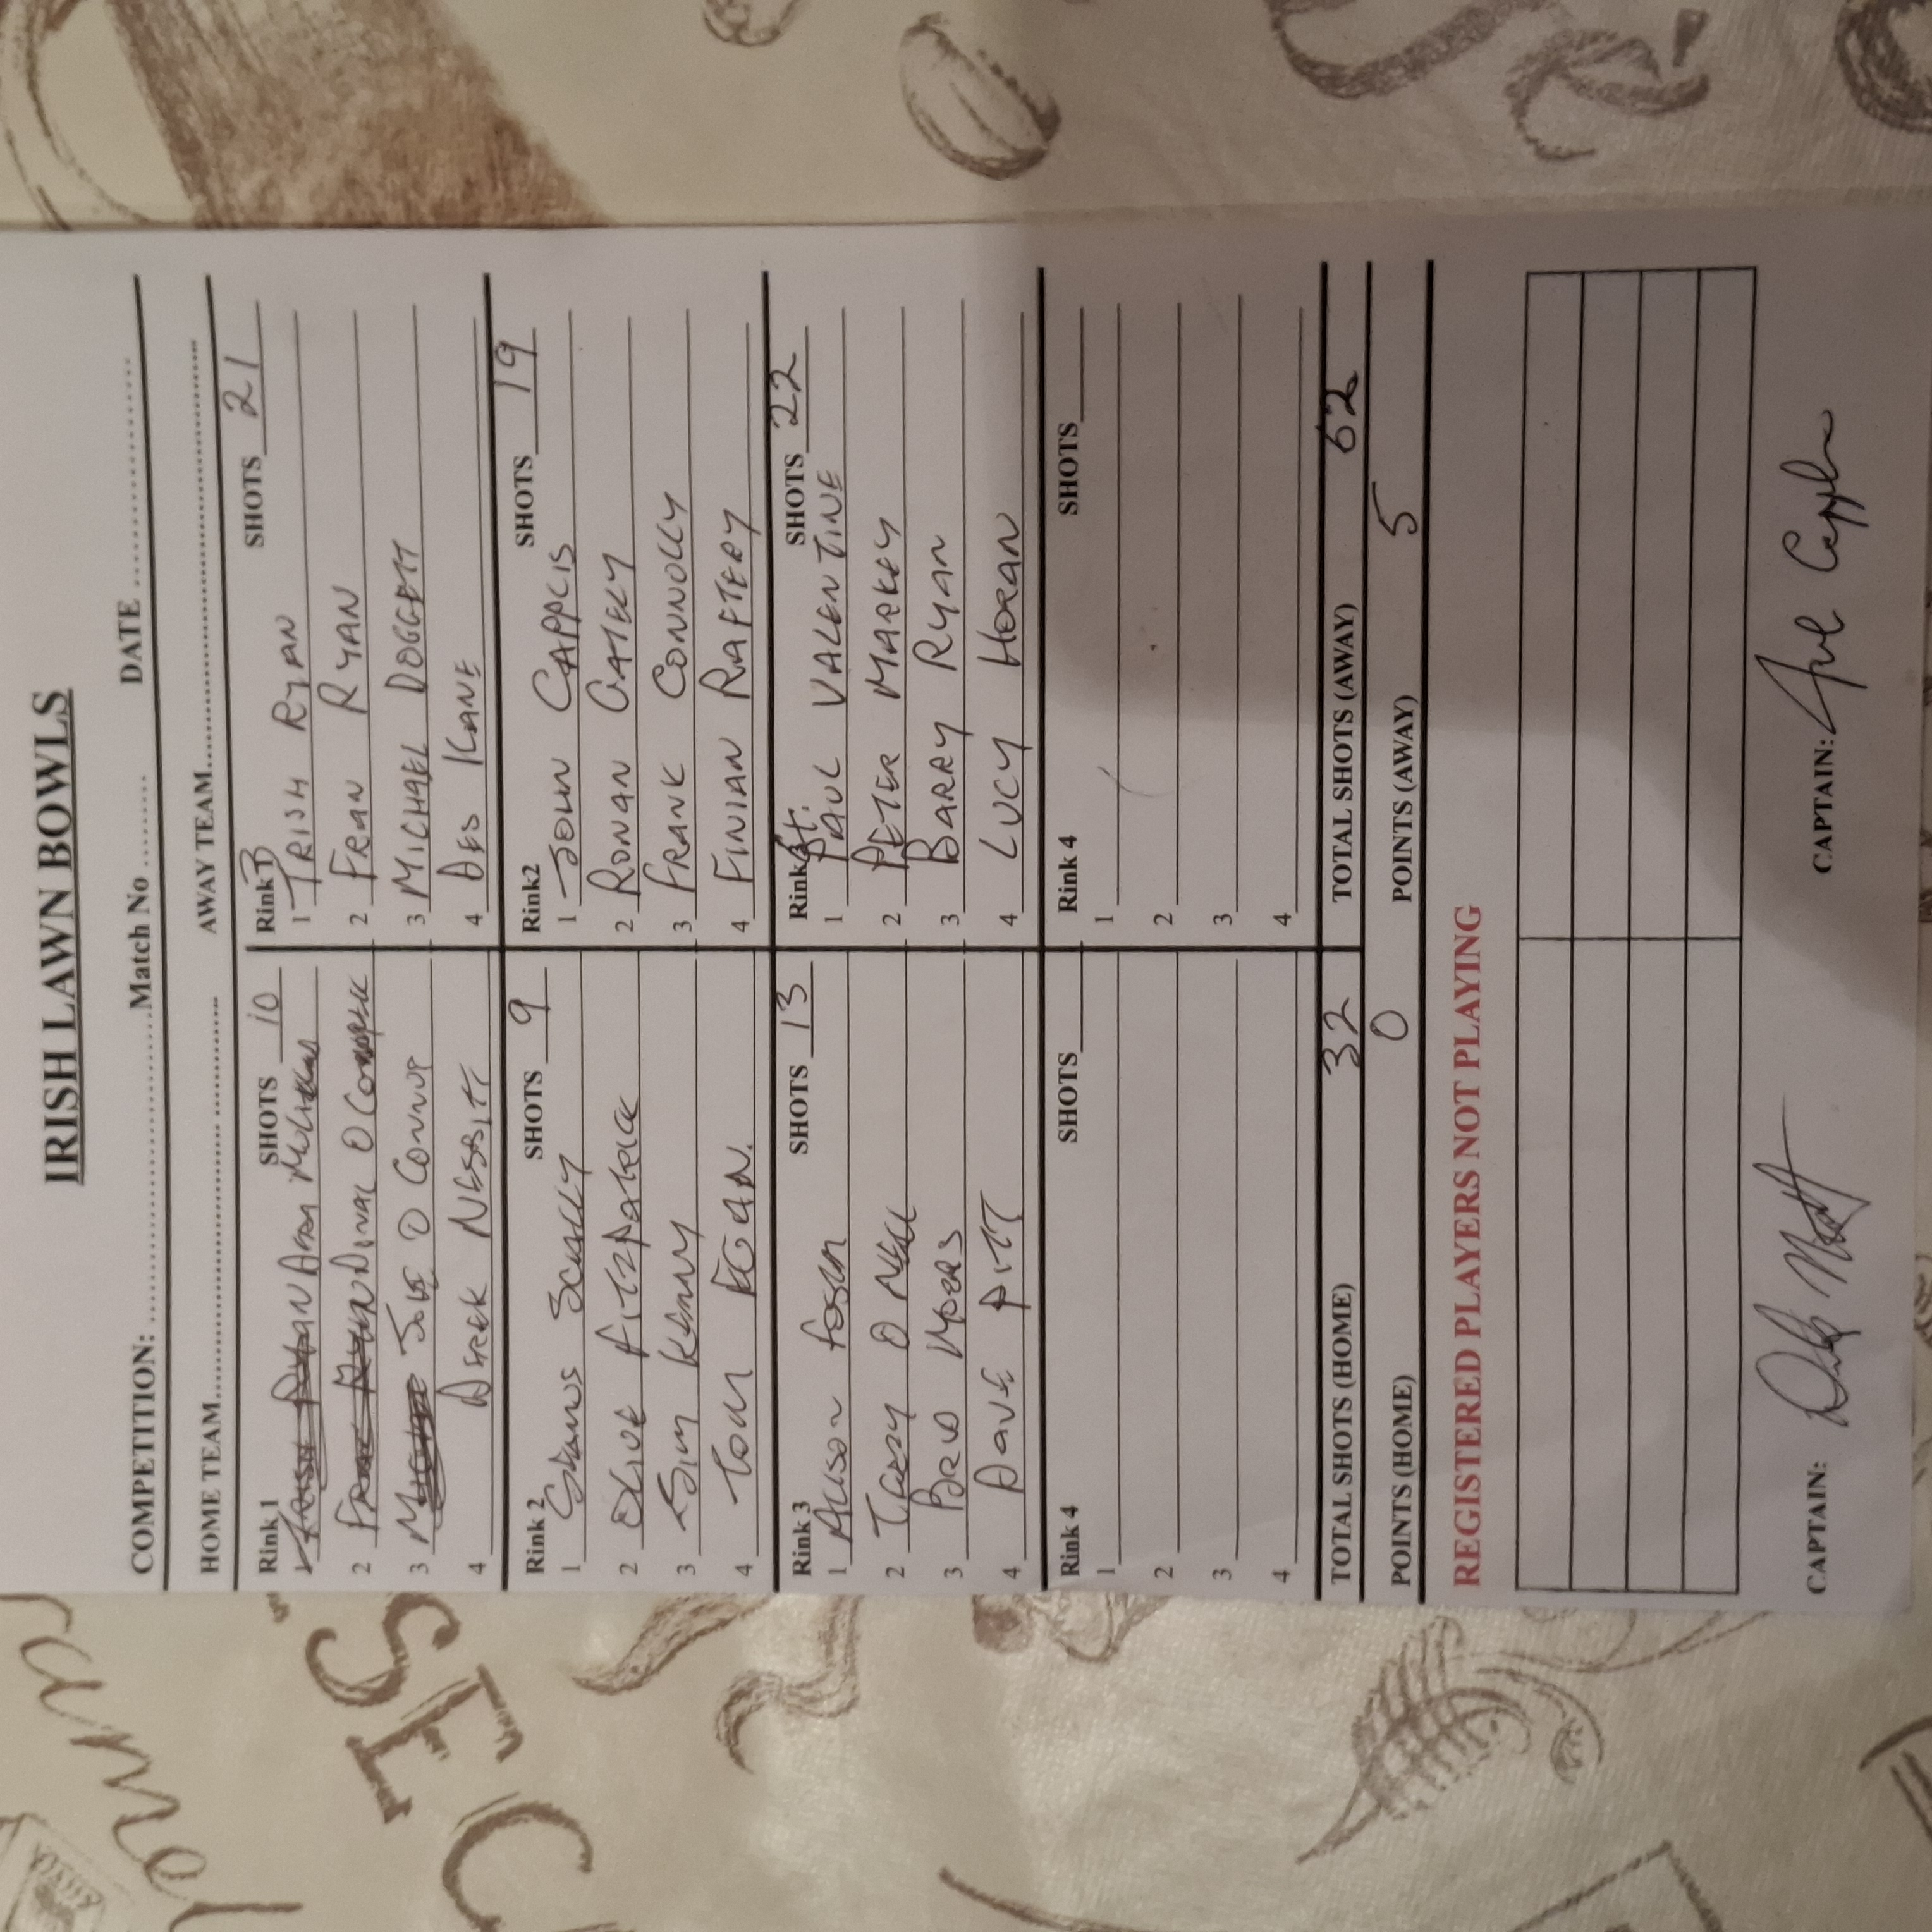 IRISH LAWN BOWLS
COMPETITION: Match No DATE
HOME TEAM AWAY TEAM
Rink 1 SHOTS 10
1
2 O Connor
3 JOHE O CONNOR
4 DEREK NESBITT
Rink 3 SHOTS 21
1 TRISH RYAN
2 FRAN RYAN
3 MICHAEL DOGGETT
4 DES KANE
Rink 2 SHOTS 9
1 SEAMUS SCALLY
2 OLIVE FITZPATRICK
3 JIM KENNY
4 TOM EGAN.
Rink2 SHOTS 19
1 JOHN
2 RONAN GATELY
3 FRANK CONNOLLY
4 FINIAN RAFTERY
Rink 3 SHOTS 13
1 ALISON
2 O NEILL
3 MYERS
4 DAVE PITT
Rink SHOTS 22
1 PAUL VALENTINE
2 PETER MARKEY
3 BARRY RYAN
4 LUCY HORAN
Rink 4 SHOTS
1
2
3
4
Rink 4 SHOTS
1
2
3
4
TOTAL SHOTS (HOME) 32 TOTAL SHOTS (AWAY) 62
POINTS (HOME) 0 POINTS (AWAY) 5
REGISTERED PLAYERS NOT PLAYING
CAPTAIN: CAPTAIN:
SEC